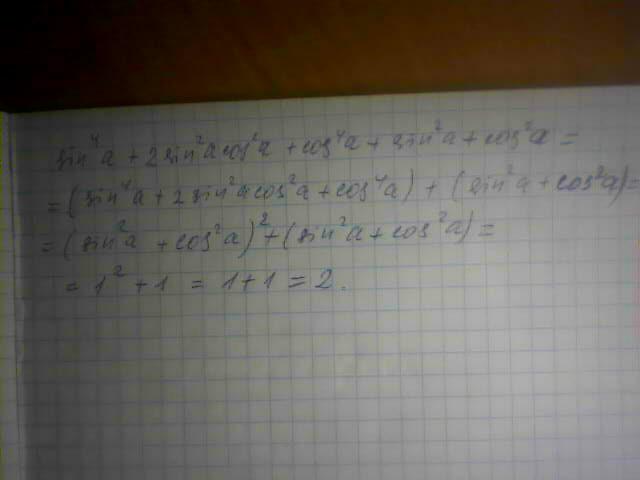 sin⁴a + 2sin²acos²a + cos⁴a + sin²a + cos²a =
= (sin⁴a + 2sin²acos²a + cos⁴a) + (sin²a + cos²a) =
= (sin²a + cos²a)² + (sin²a + cos²a) =
= 1² + 1 = 1 + 1 = 2.